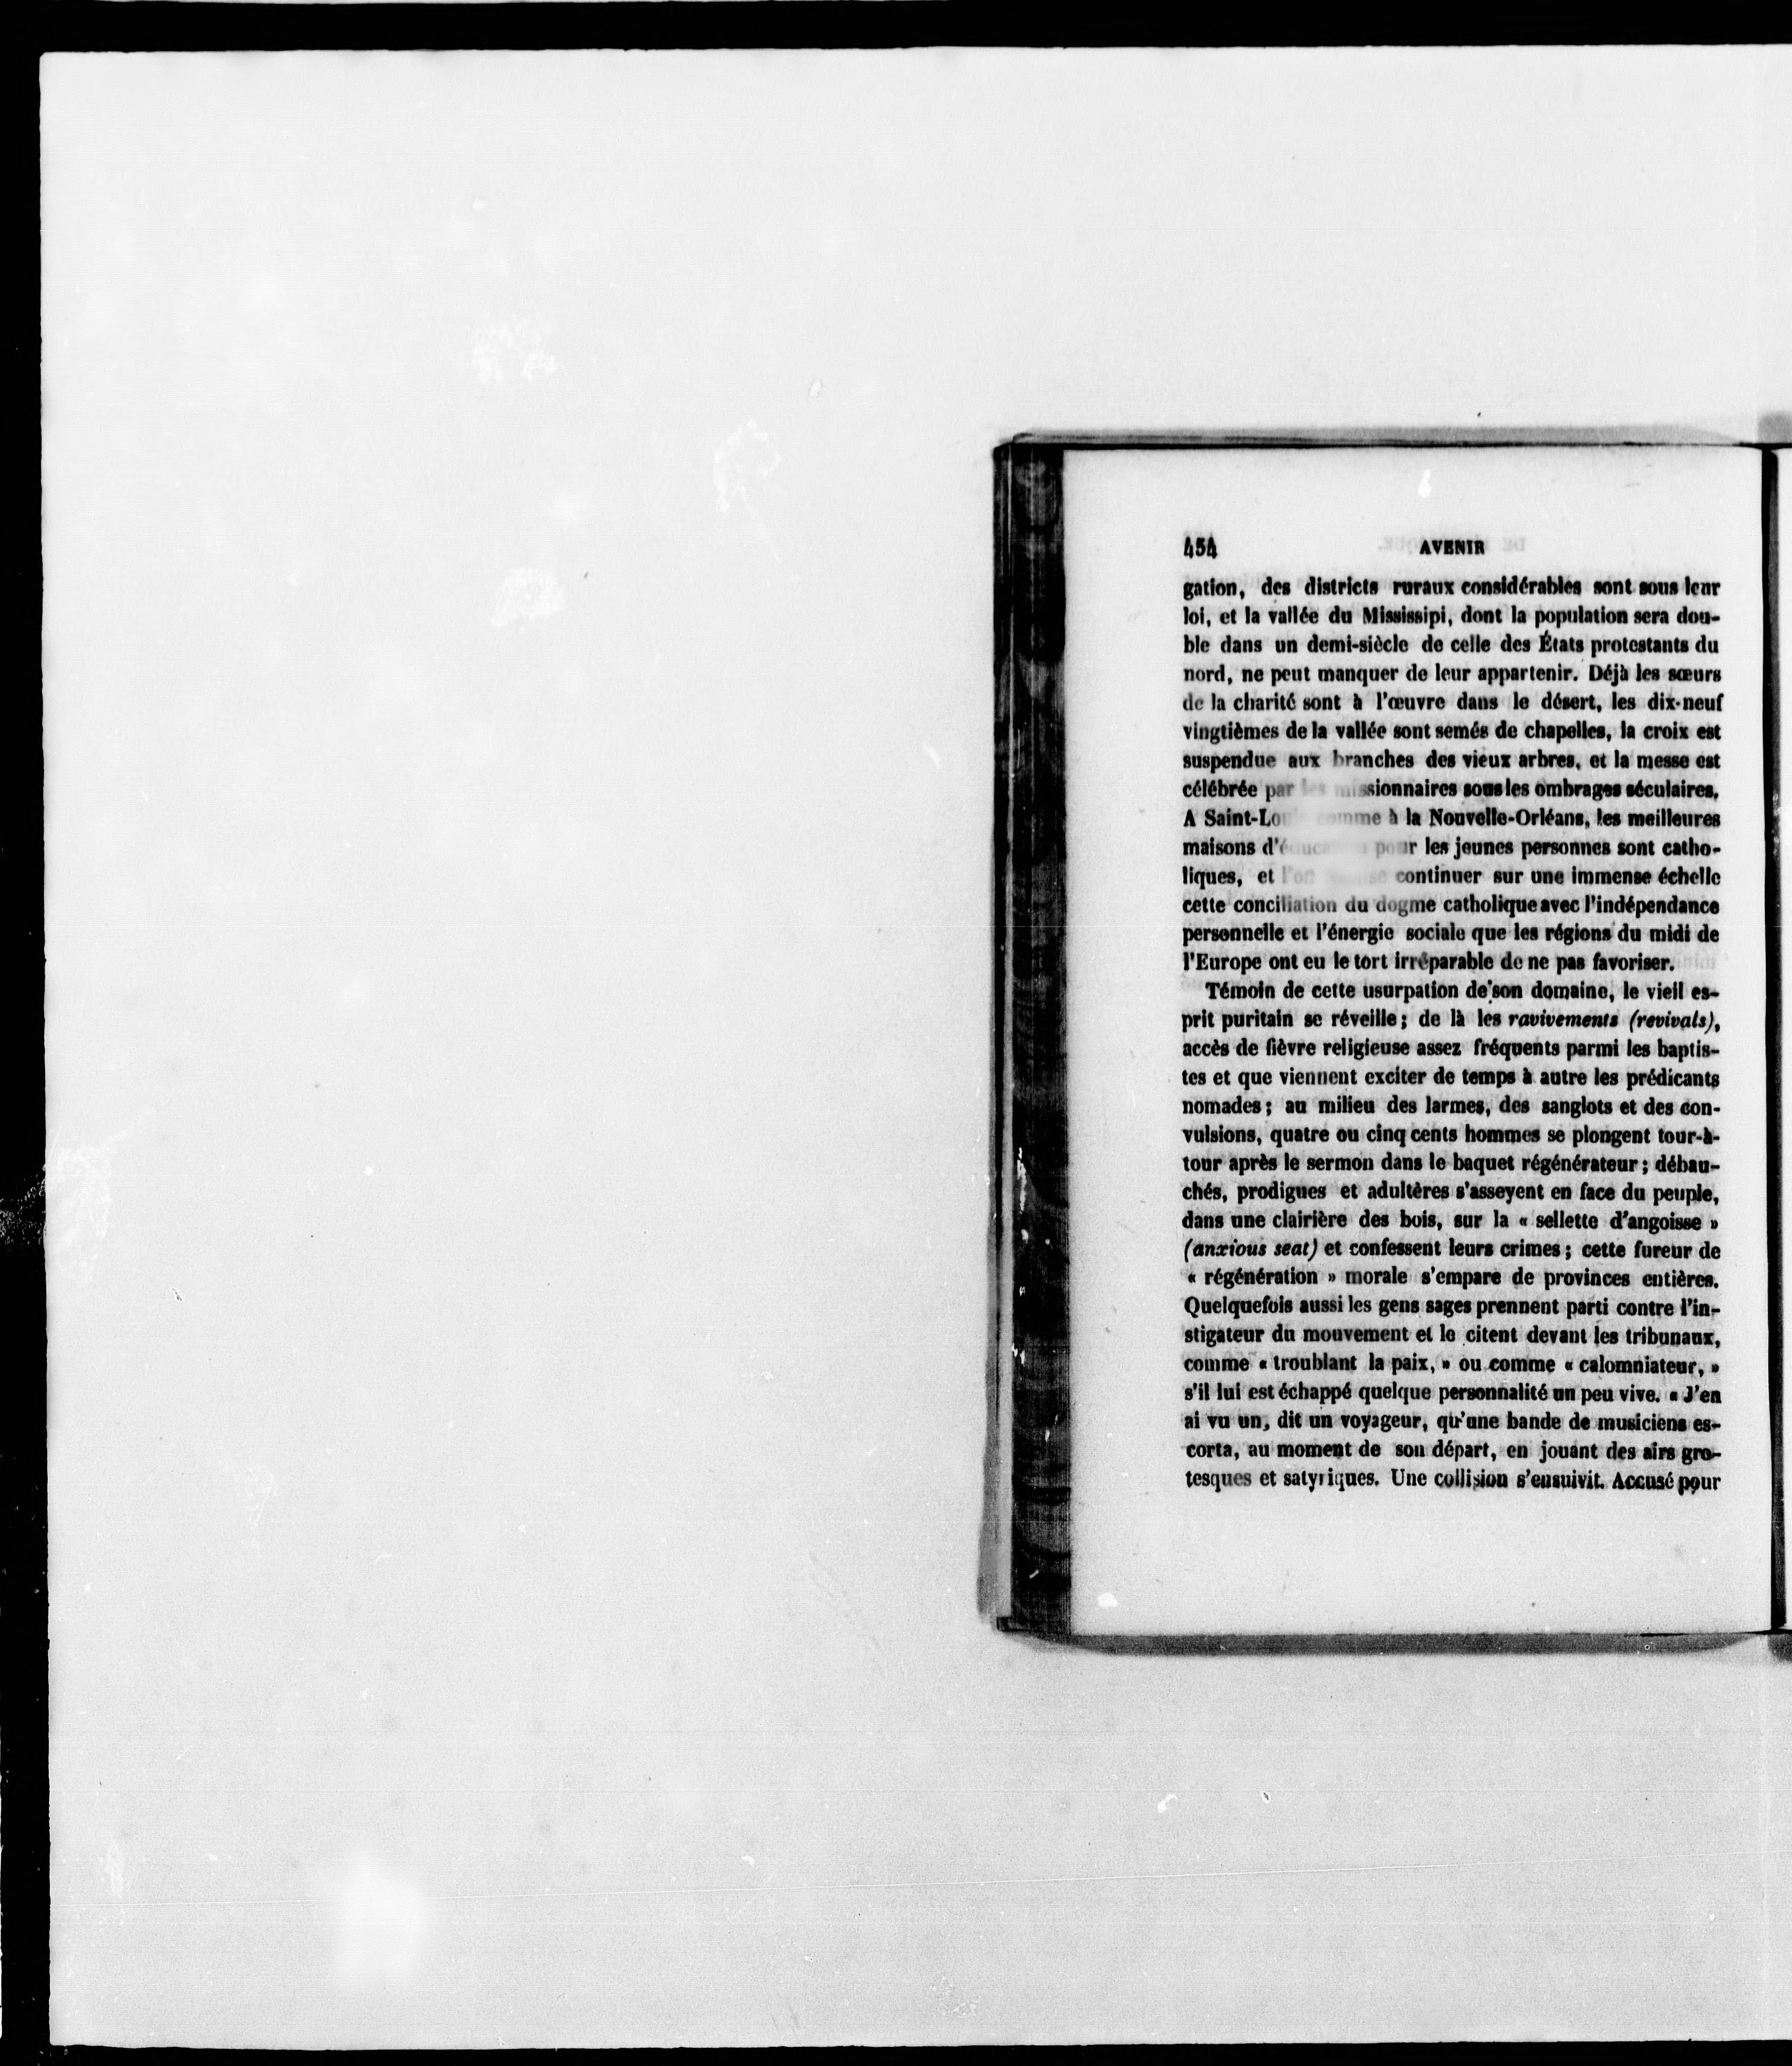 454 AVENIR
gation, des districts ruraux considérables sont sous leur
loi, et la vallée du Mississipi, dont la population sera dou-
ble dans un demi-siècle de celle des États protestants du
nord, ne peut manquer de leur appartenir. Déjà les sœurs
de la charité sont à l'œuvre dans le désert, les dix-neuf
vingtièmes de la vallée sont semés de chapelles, la croix est
suspendue aux branches des vieux arbres, et la messe est
célébrée par les missionnaires sous les ombrages séculaires.
A Saint-Lou comme à la Nouvelle-Orléans, les meilleures
maisons d' pour les jeunes personnes sont catho-
liques, et l'on se continuer sur une immense échelle
cette conciliation du dogme catholique avec l'indépendance
personnelle et l'énergie sociale que les régions du midi de
l'Europe ont eu le tort irréparable de ne pas favoriser.
Témoin de cette usurpation de son domaine, le vieil es-
prit puritain se réveille; de là les ravivements (revivals),
accès de fièvre religieuse assez fréquents parmi les baptis-
tes et que viennent exciter de temps à autre les prédicants
nomades; au milieu des larmes, des sanglots et des con-
vulsions, quatre ou cinq cents hommes se plongent tour-à-
tour après le sermon dans le baquet régénérateur; débau-
chés, prodigues et adultères s'asseyent en face du peuple,
dans une clairière des bois, sur la « sellette d'angoisse »
(anxious seat) et confessent leurs crimes; cette fureur de
« régénération » morale s'empare de provinces entières.
Quelquefois aussi les gens sages prennent parti contre l'in-
stigateur du mouvement et le citent devant les tribunaux,
comme « troublant la paix, » ou comme « calomniateur, »
s'il lui est échappé quelque personnalité un peu vive. « J'en
ai vu un, dit un voyageur, qu'une bande de musiciens es-
corta, au moment de son départ, en jouant des airs gro-
tesques et satyriques. Une collision s'ensuivit. Accusé pour